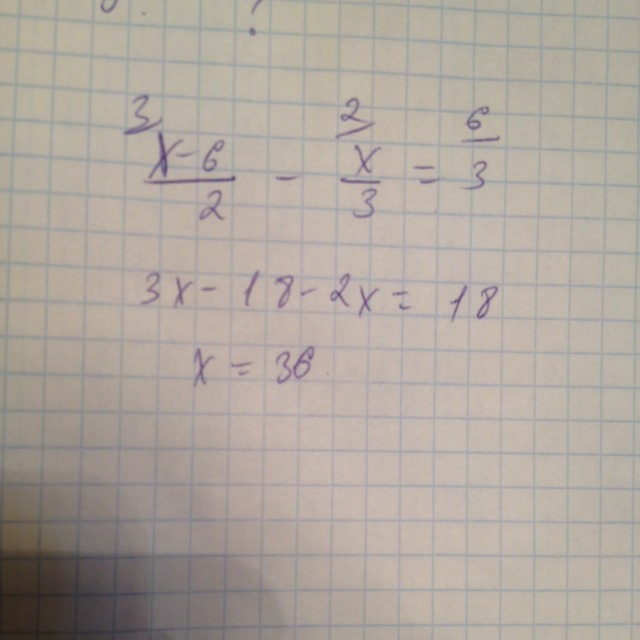 3 2 6
x - 6 / 2 - x / 3 = 3
3x - 18 - 2x = 18
x = 36